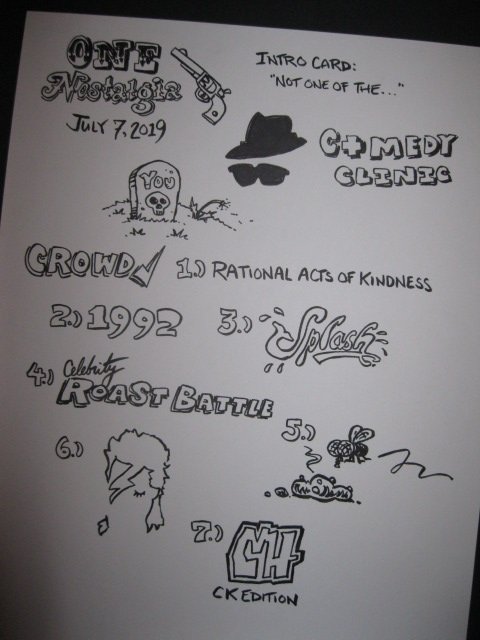 ONE
Nostalgia
JULY 7, 2019
INTRO CARD:
"NOT ONE OF THE..."
COMEDY
CLINIC
YOU
CROWD
1.) RATIONAL ACTS OF KINDNESS
2.) 1992
3.) Splash
4.) Celebrity
ROAST BATTLE
5.)
6.)
7.) MH
CK EDITION